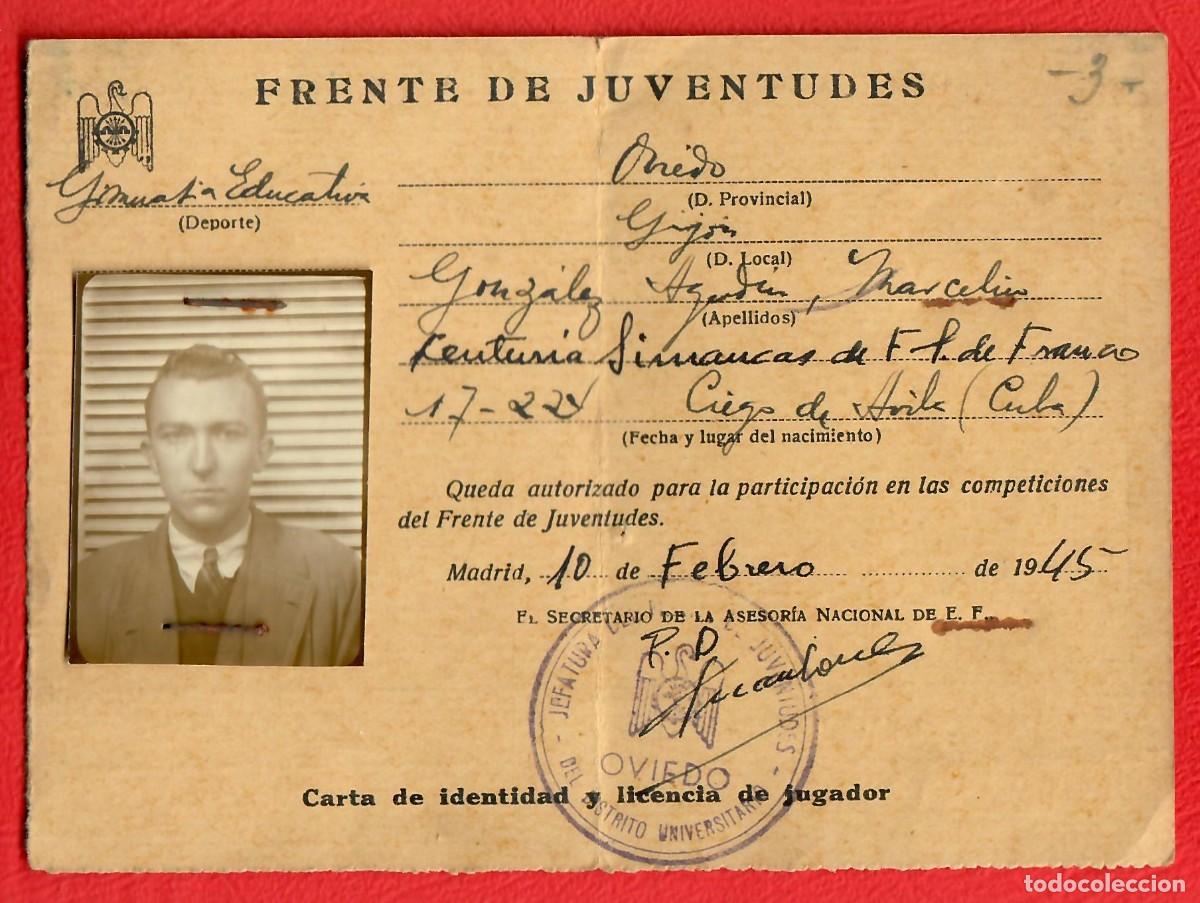 FRENTE DE JUVENTUDES
- 3 -
Oviedo
(D. Provincial)
Educativa
(Deporte)
Gijón
(D. Local)
González Agustín, Marcelino
(Apellidos)
Centuria Simancas de F. F. de Franco
17-2-24 Ciego de Avila (Cuba)
(Fecha y lugar del nacimiento)
Queda autorizado para la participación en las competiciones
del Frente de Juventudes.
Madrid, 10 de Febrero de 1945
EL SECRETARIO DE LA ASESORÍA NACIONAL DE E. F.
P. D.
JEFATURA DEL DE JUVENTUDES
OVIEDO
DEL DISTRITO UNIVERSITARIO
Carta de identidad y licencia de jugador
todocoleccion